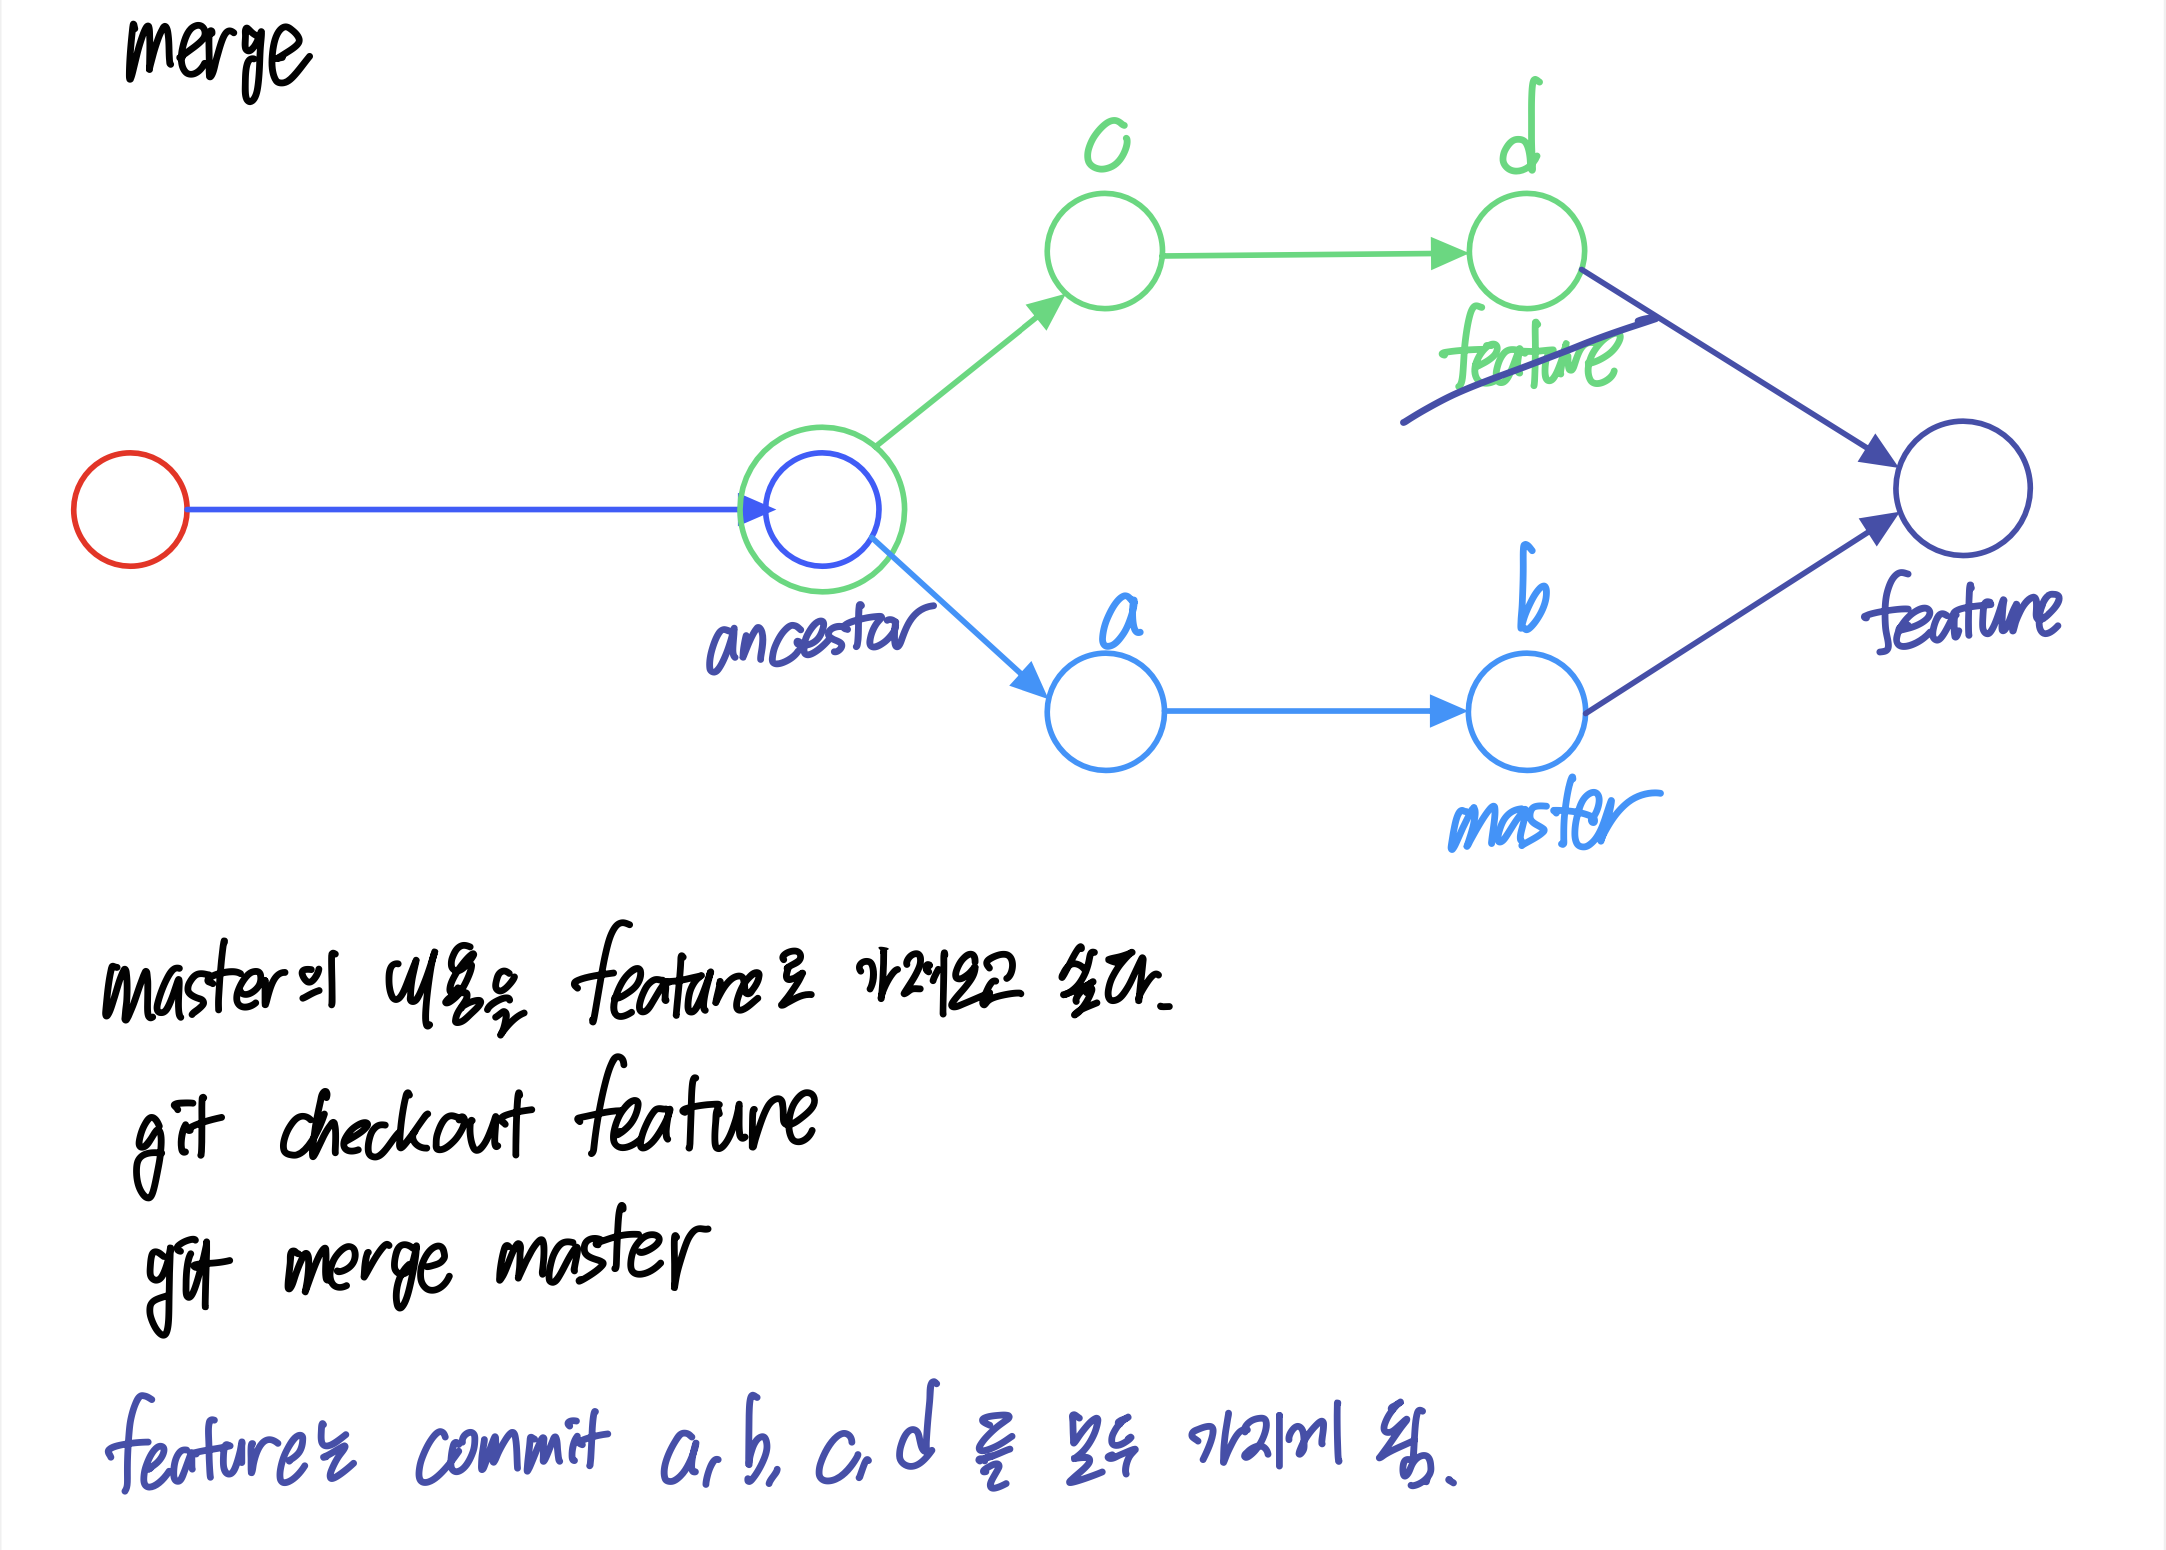 merge
c
d
feature
ancestor
a
b
feature
master
master의 내용을 feature로 가져오고 싶다.
git checkout feature
git merge master
feature는 commit a, b, c, d 를 모두 가지게 됨.